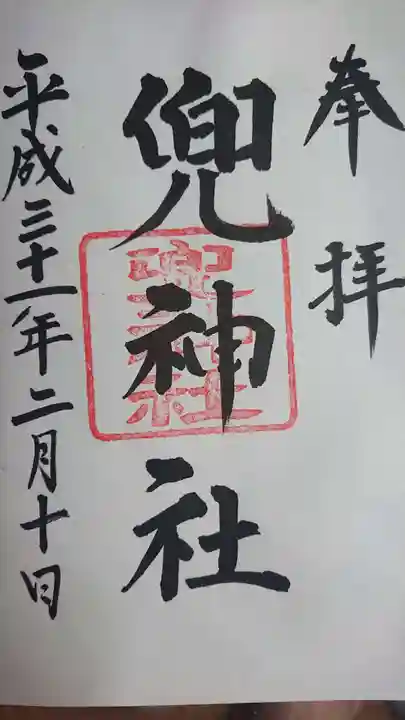 奉拝
兜神社
兜神社
平成三十一年二月十日